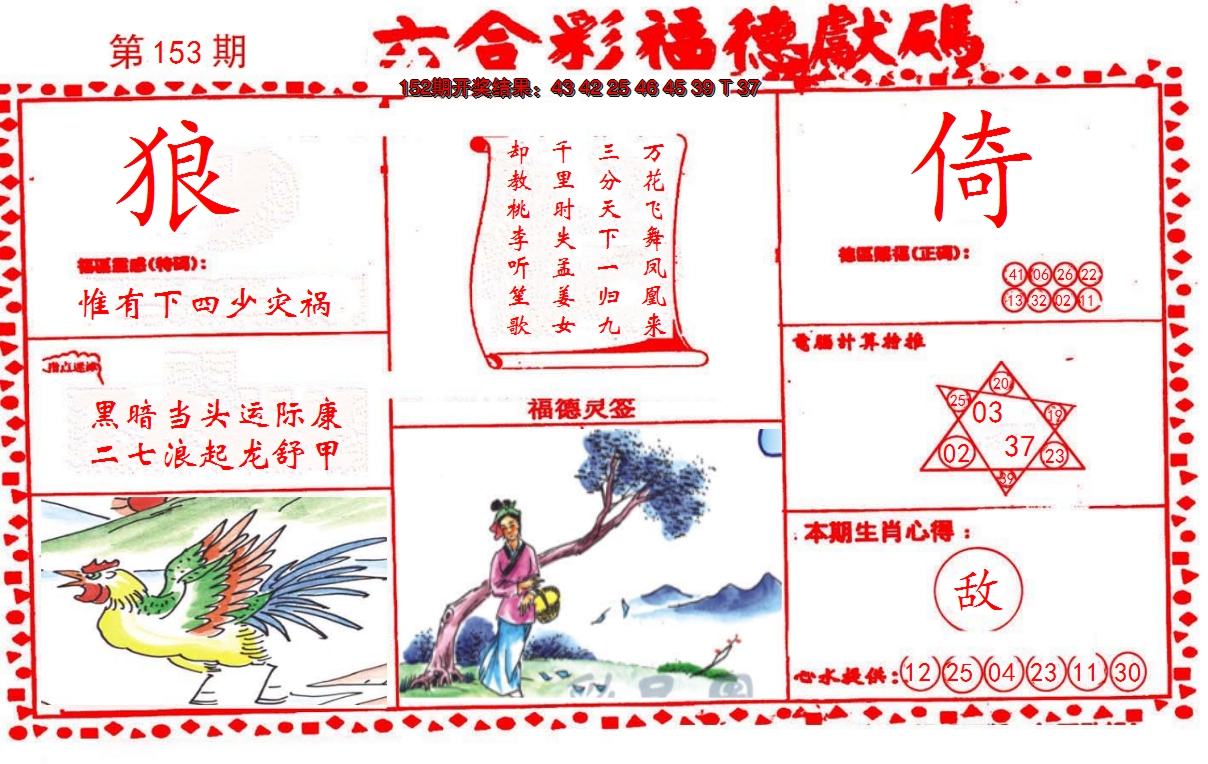 第 153 期
六合彩福德獻碼
152期开奖结果：43 42 25 46 45 39 T 37
狼
福區靈感(特碼)：
惟有下四少灾祸
指点迷津
黑暗当头运际康
二七浪起龙舒甲
万花飞舞凤凰来
三分天下一归九
千里时失孟姜女
却教桃李听笙歌
福德灵签
倚
德區賜福(正碼)：
41 06 26 22
13 32 02 11
電腦计算拾推
20
25 03 19
02 37 23
39
本期生肖心得：
敌
心水提供：12 25 04 23 11 30